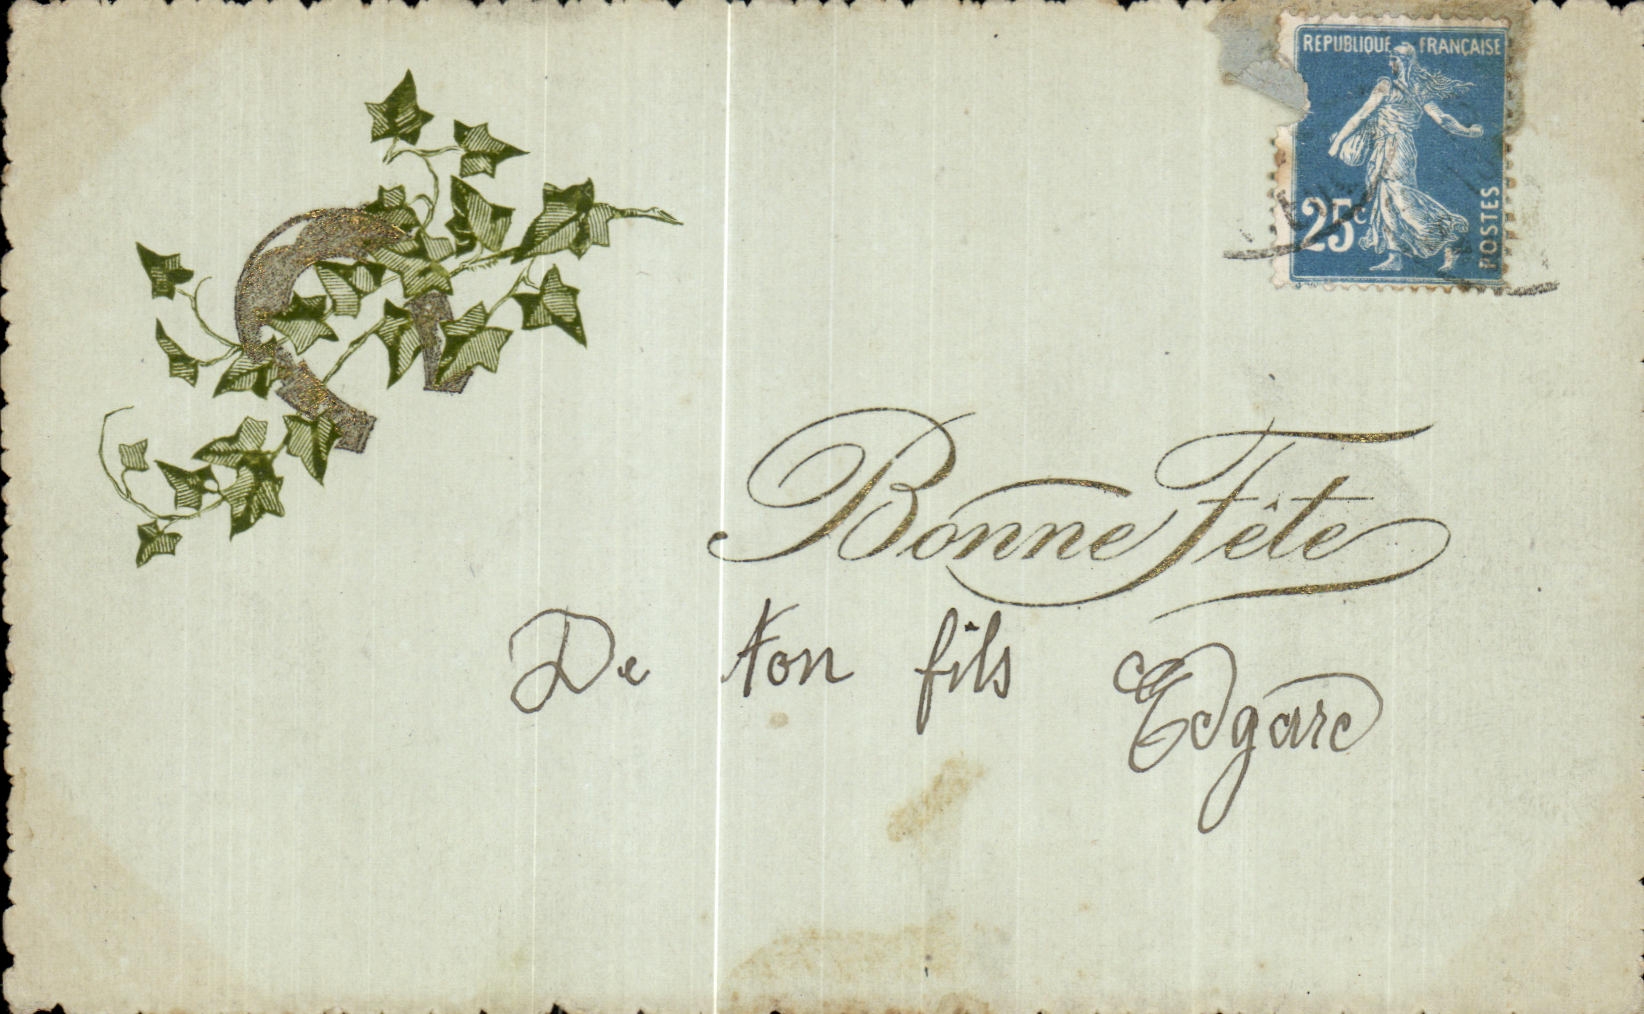 REPUBLIQUE FRANÇAISE
25c
POSTES
Bonne Fête
De ton fils Edgard